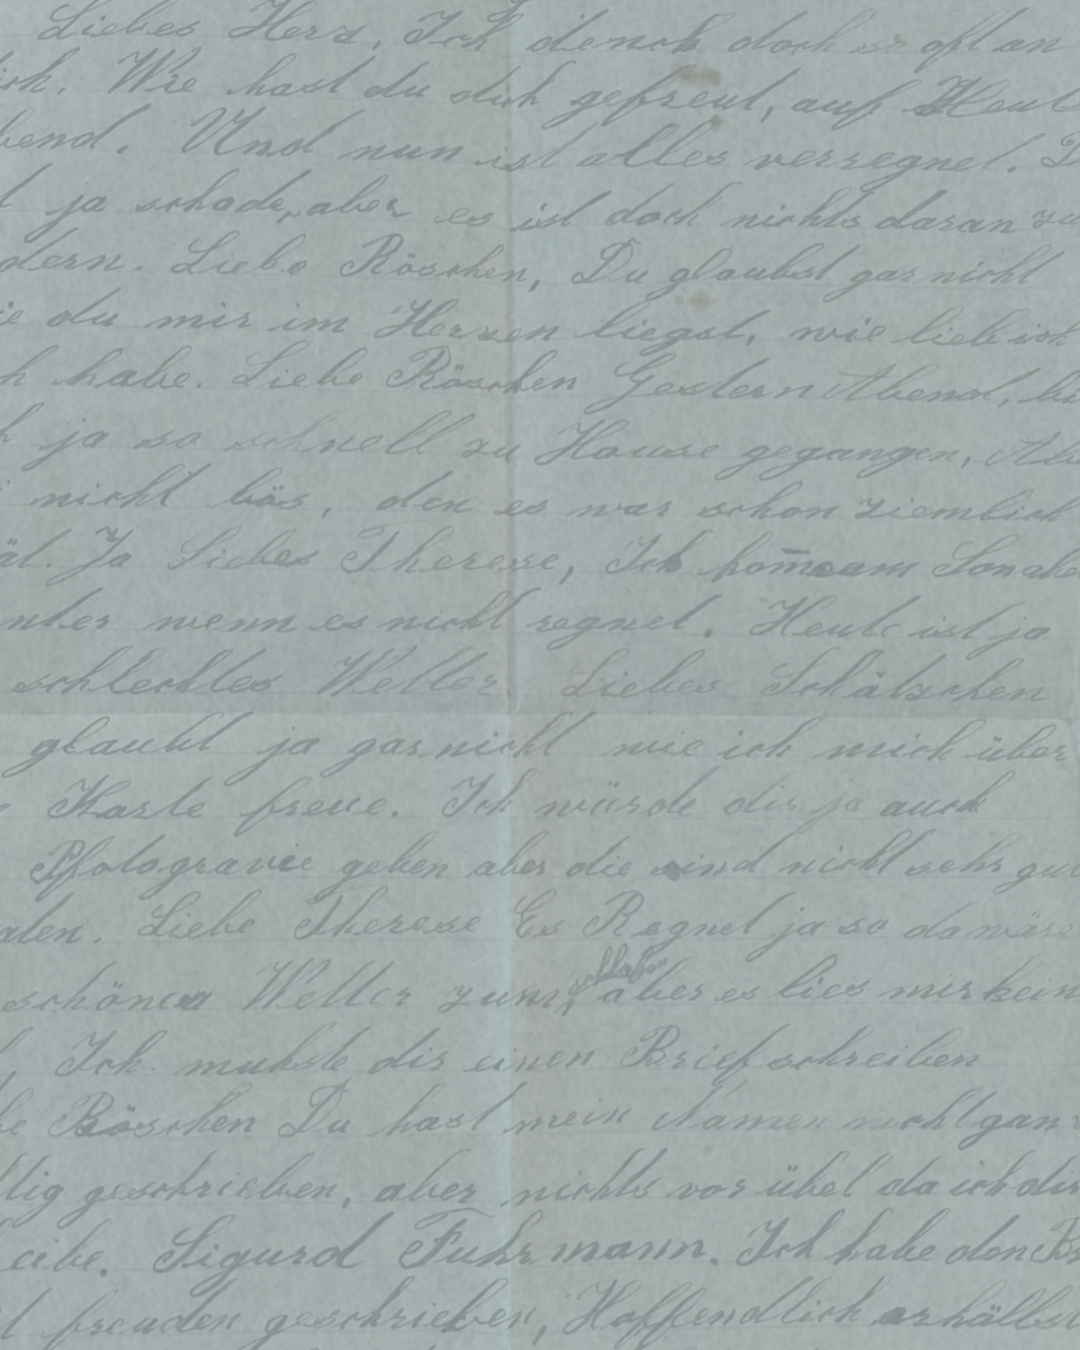 Liebes Herz, Ich denck doch so oft an
ich. Wie hast du dich gefreut, auf Heut
bend. Und nun ist alles verregnet.
t ja schade, aber es ist doch nichts daran zu
dern. Liebe Röschen, Du glaubst gar nicht
ie du mir im Herzen liegst, wie lieb ich
h habe. Liebe Röschen Gestern Abend, bi
h ja so schnell zu Hause gegangen,
i nicht bös, den es war schon ziemlich
ät. Ja Liebes Therese, Ich kom̅e am Sonabe
nter wenn es nicht regnet. Heute ist ja
schlechtes Wetter Liebes Schätzchen
glaubt ja garnicht wie ich mich über
e Karte freue. Ich würde dir ja auch
Pfotogravie geben aber die sind nicht sehr gut
aten. Liebe Therese Es Regnet ja so da wäre
schönes Wetter zum schlafen aber es lies mir kein
Ich muhste dir einen Brief schreiben
be Röschen Du hast mein Namen nicht ganz
tig geschrieben, aber nichts vor übel da ich dir
eibe. Sigurd Fuhrmann. Ich habe den Br
t freuden geschrieben, Hoffendlich erhältst